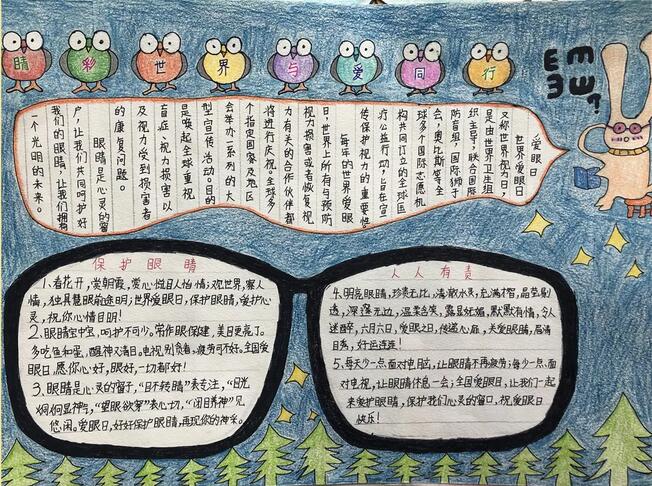 睛 彩 世 界 与 爱 同 行
爱眼日
世界爱眼日
又称世界视力日，
是由世界卫生组
织主导，联合国际
防盲组，国际狮子
会，奥比斯等全
球多个国际志愿机
构共同订立的全球医
疗公益行动，旨在宣
传保护视力的重要性。
每年的世界爱眼
日，世界上所有与预防
视力损害或者恢复视
力有关的合作伙伴都
将进行庆祝。全球多
个指定国家及地区
会举办一系列的大
型宣传活动。目的
是唤起全球重视
盲症、视力损害以
及视力受到损害者
的康复问题。
眼睛是心灵的窗
户，让我们共同呵护好
我们的眼睛，让我们拥有
一个光明的未来。
保护眼睛
1、看花开，赏朝霞，赏心悦目人怡情；观世界，察人
情，独具慧眼前途明；世界爱眼日，保护眼睛，爱护心
灵，祝你心情日明！
2、眼睛宝中宝，呵护不可少。常作眼保健，美目更亮丁。
多吃鱼和蛋，醒神又清目。电视，别贪看，疲劳可不好。全国爱
眼日，愿你心好，眼好，一切都好！
3、眼睛是心灵的窗子，“目不转睛”表专注，“目光
炯炯”显神气，“望眼欲穿”表心切，“闭目养神”见
悠闲。爱眼日，好好保护眼睛，再现你的神采。
人人有责
4、明亮眼睛，珍贵无比，清澈水灵，充满才智，晶莹剔
透，深邃无边，温柔含笑，露显妩媚，默默有情，令人
迷醉，六月六日，爱眼之日，传递心扉，关爱眼睛，眉清
目秀，好运连连！
5、每天少一点，面对电脑，让眼睛不再疲劳；每少一点，面
对电视，让眼睛休息一会；全国爱眼日，让我们一起
来爱护眼睛，保护我们心灵的窗口，祝爱眼日
快乐！